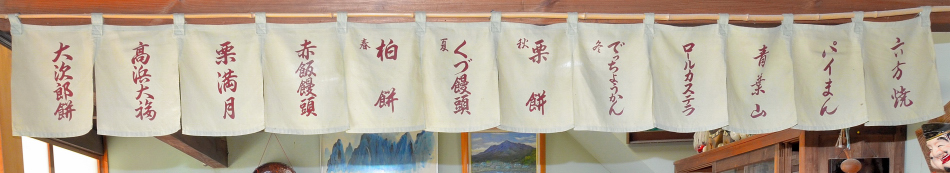 六方焼
パイまん
青葉山
ロールカステラ
冬 でっちようかん
秋 栗餅
夏 くづ饅頭
春 柏餅
赤飯饅頭
栗満月
高浜大福
大次郎餅